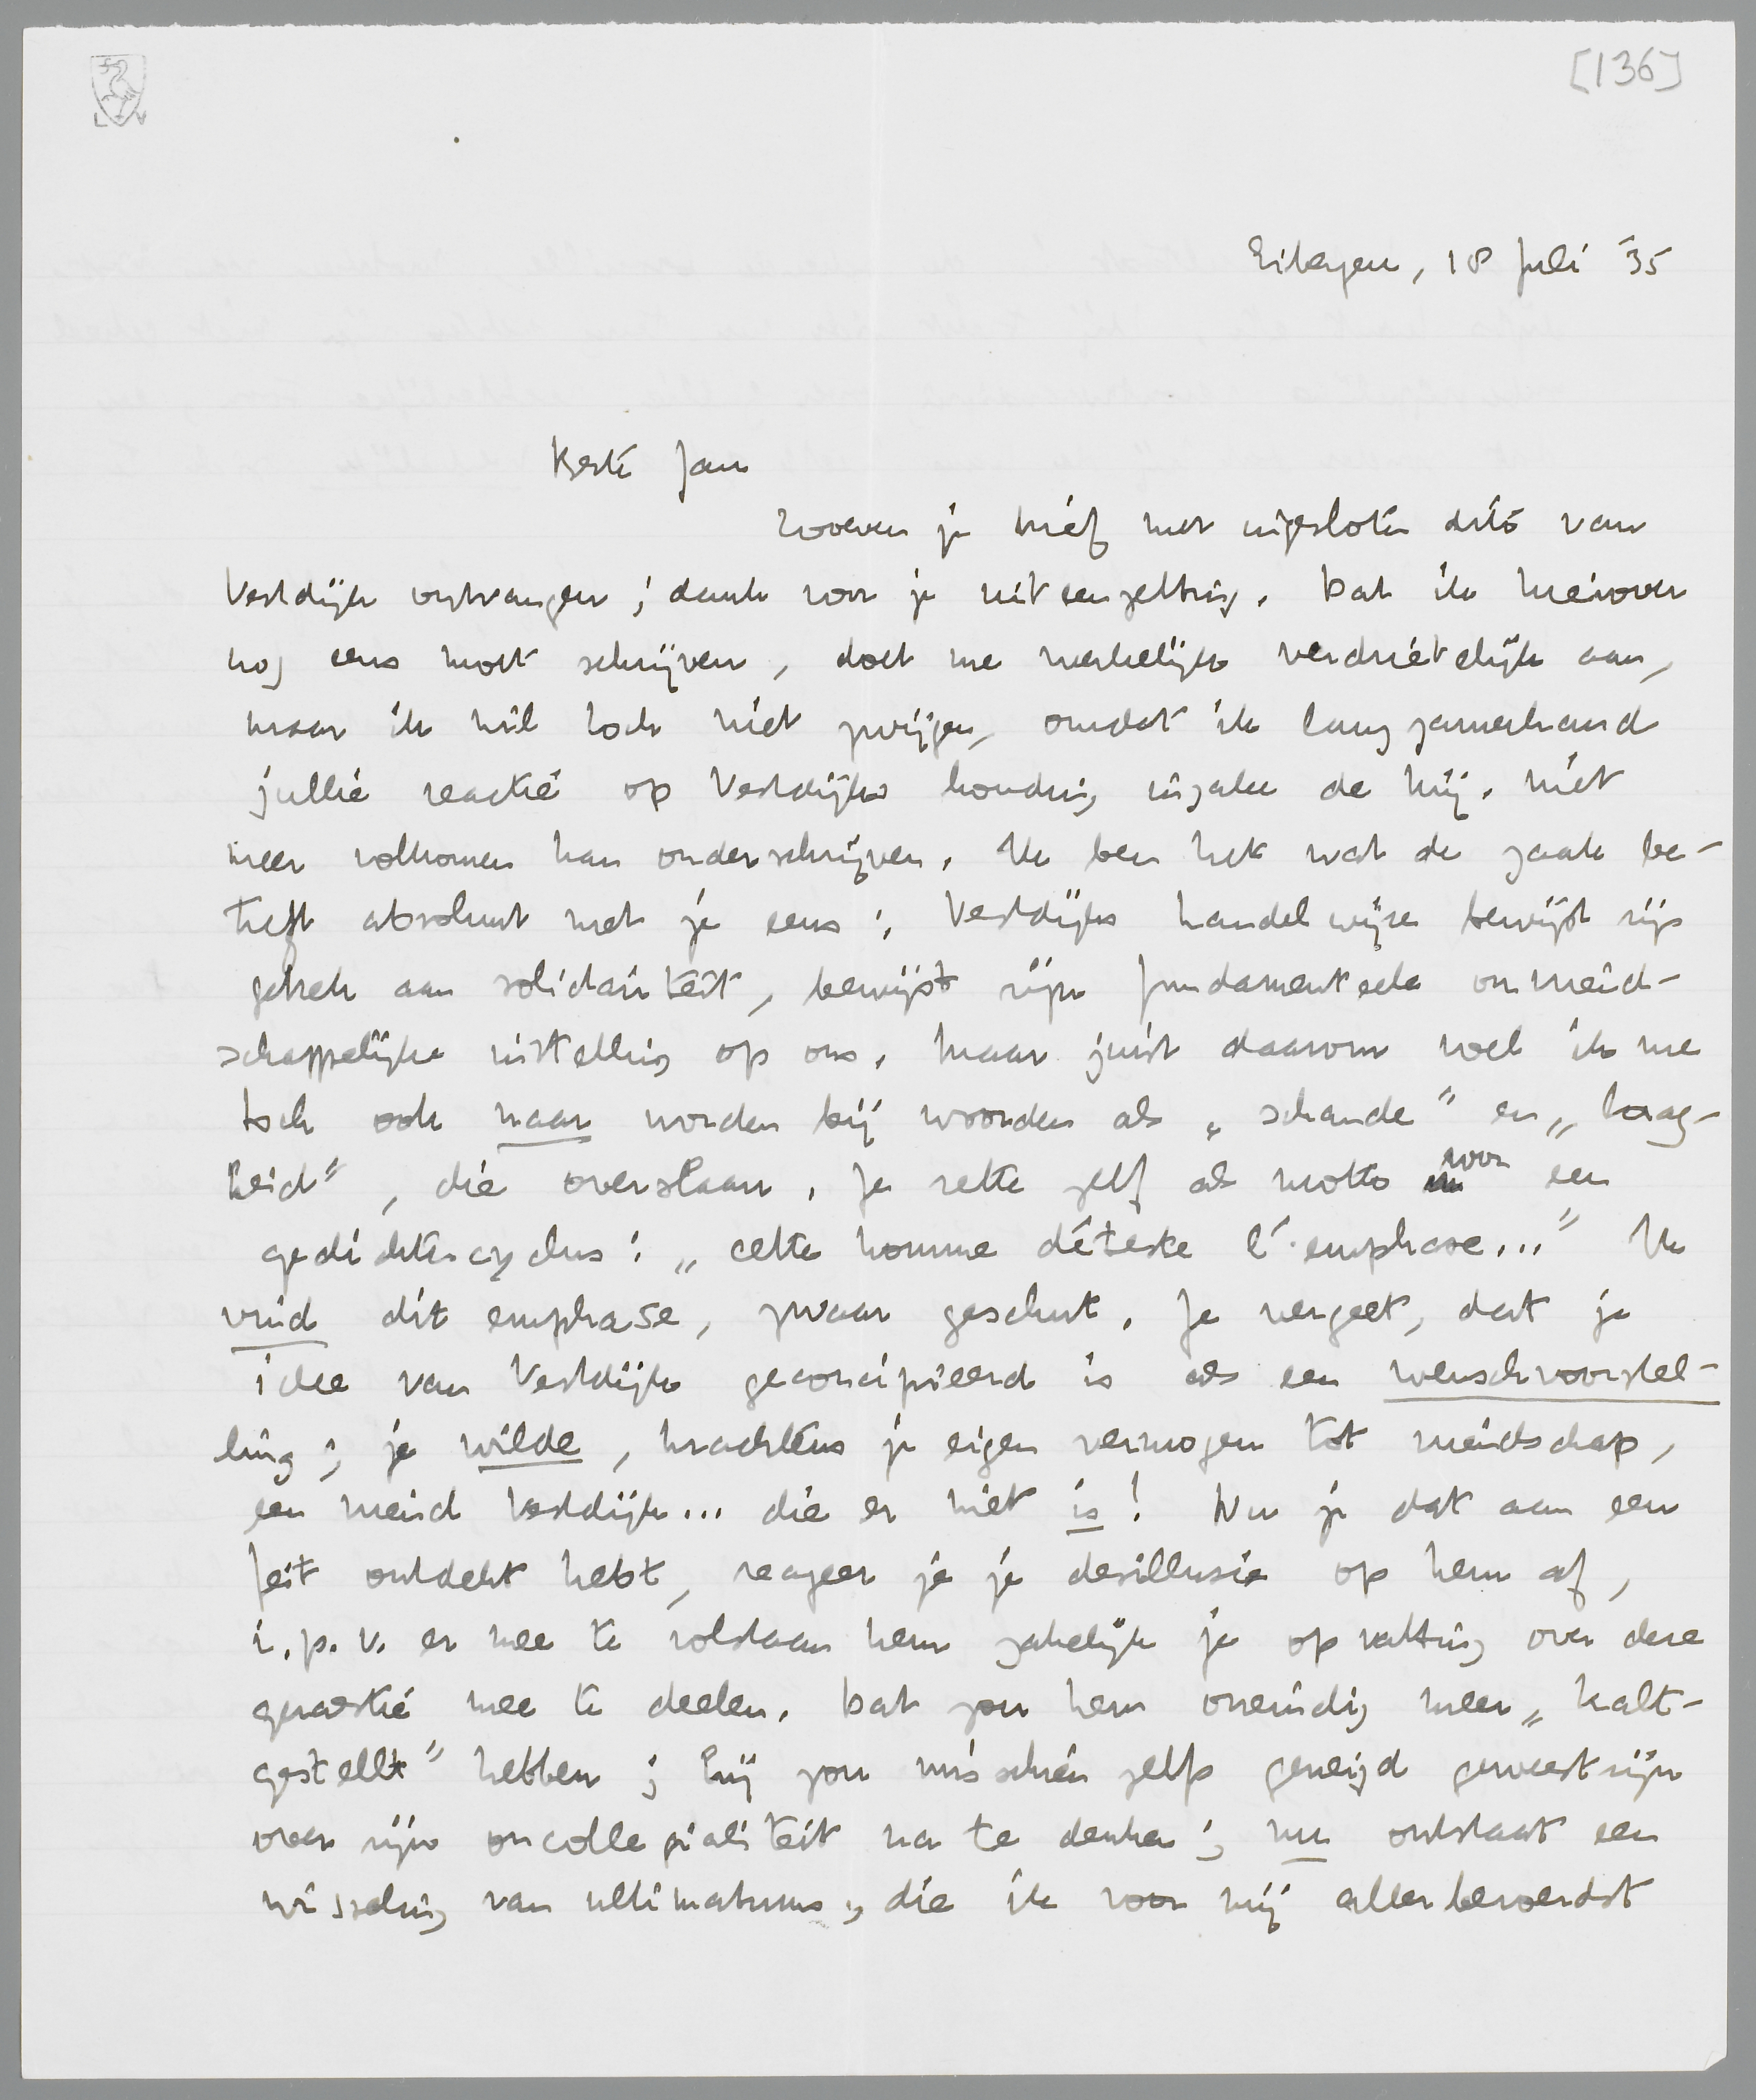 [136]
Eibergen, 18 Juli '35
Beste Jan
Zooeven je brief met ingesloten dito van
Vestdijk ontvangen; dank voor je uiteenzetting. Dat ik hierover
nog eens moet schrijven, doet me werkelijk verdrietelijk aan,
maar ik wil toch niet zwijgen, omdat ik langzamerhand
jullie reactie op Vestdijks houding inzake de krij. niet
meer volkomen kan onderschrijven. Ik ben het wat de zaak be-
treft absoluut met je eens; Vestdijks handelwijze bewijst zijn
gebrek aan solidariteit, bewijst zijn fundamenteele onvriend-
schappelijke instelling op ons. Maar juist daarom voel ik me
toch ook naar worden bij woorden als „schande” en „laag-
heid”, die overslaan. Je zette zelf als motto voor een
gedichtencyclus: „cette homme déteste l'emphase...” Ik
vind dit emphase, zwaar geschut. Je vergeet, dat je
idee van Vestdijk geconcipieerd is als een wenschvoorstel-
ling; je wilde, krachtens je eigen vermogen tot vriendschap,
een vriend Vestdijk... die er niet is! Nu je dat aan een
feit ontdekt hebt, reageer je je desillusie op hem af,
i.p.v. er mee te volstaan hem zakelijk je opvatting over deze
quaestie mee te deelen. Dat zou hem oneindig meer „kalt-
gestellt” hebben; hij zou misschien zelfs geneigd geweest zijn
over zijn oncollegialiteit na te denken; nu ontstaat een
wisseling van ultimatums, die ik voor mij allerberoerdst